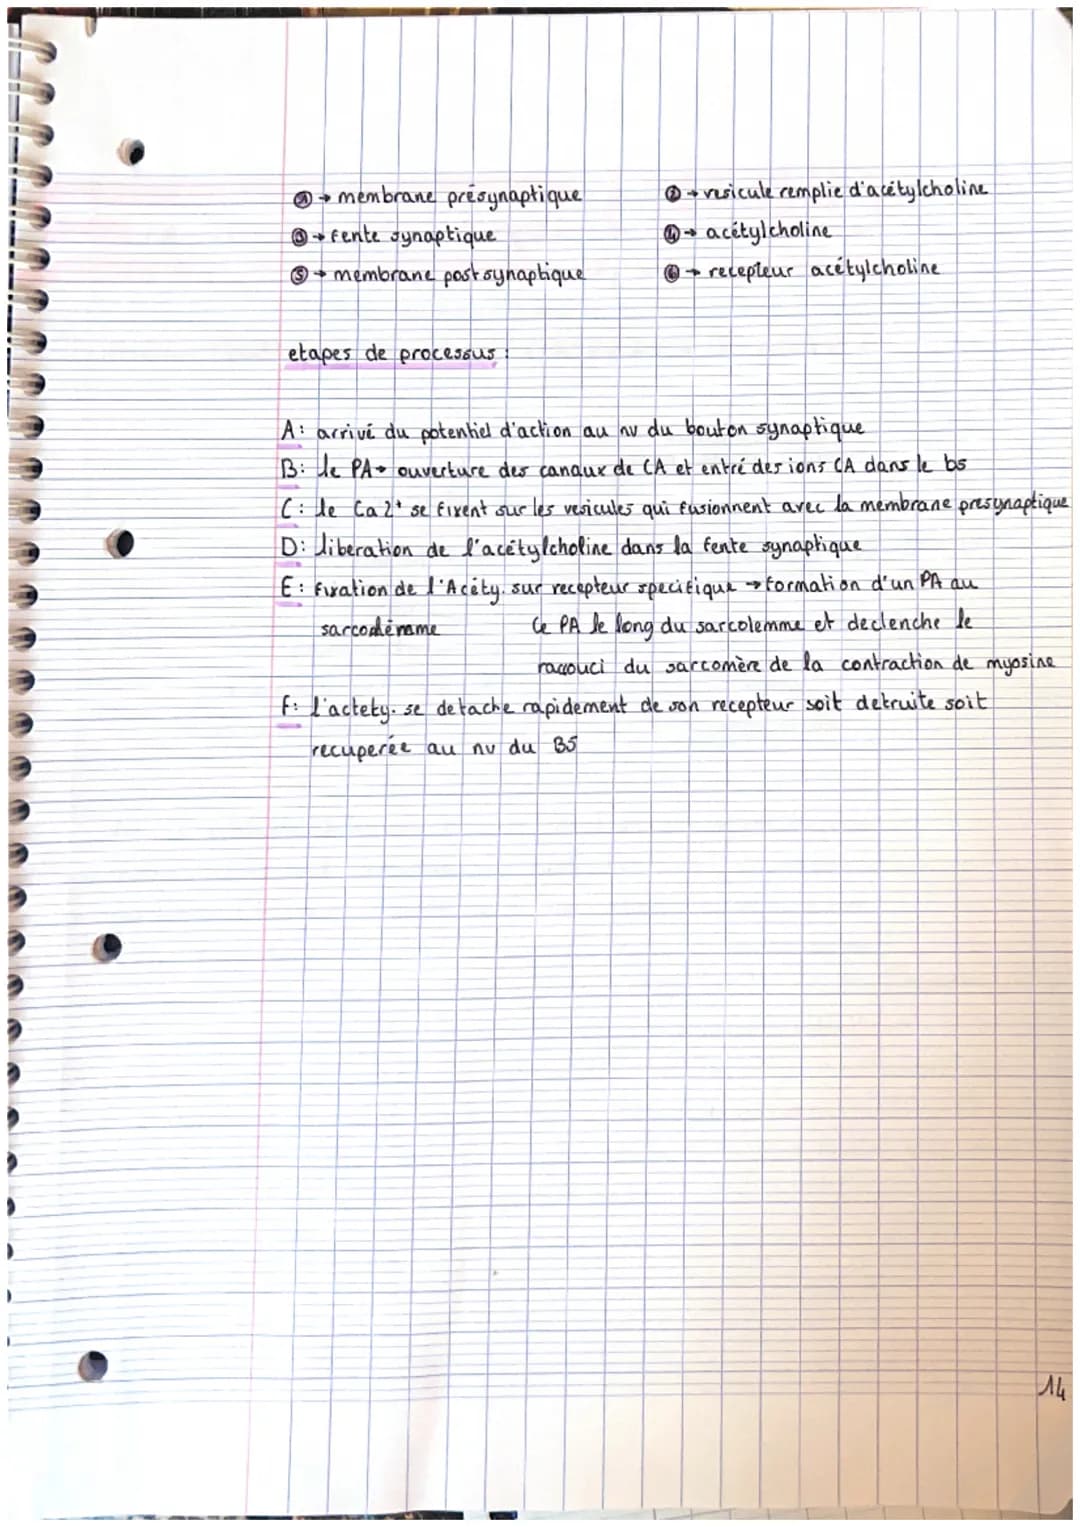 ① → membrane présynaptique ② → vesicule remplie d'acétylcholine
③ → fente synaptique ④ → acétylcholine
⑤ → membrane postsynaptique ⑥ → recepteur acétylcholine
etapes de processus :
A: arrivé du potentiel d'action au nv du bouton synaptique
B: le PA → ouverture des canaux de CA et entré des ions CA dans le bs
C: le Ca 2+ se fixent sur les vesicules qui fusionnent avec la membrane presynaptique
D: liberation de l'acétylcholine dans la fente synaptique
E: fixation de l'Acéty. sur recepteur specifique → formation d'un PA au
Ce PA le long du sarcolemme et declenche le
raccouci du sarcomère de la contraction de myosine
F: l'actety. se detache rapidement de son recepteur soit detruite soit
recuperée au nv du BS
14